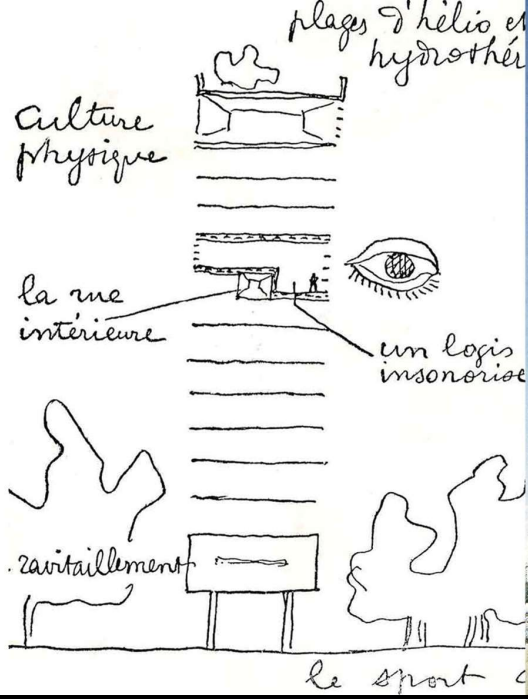 plages d'hélio et
hydrothér
culture
physique
la rue
intérieure
un logis
insonorisé
ravitaillement
le sport